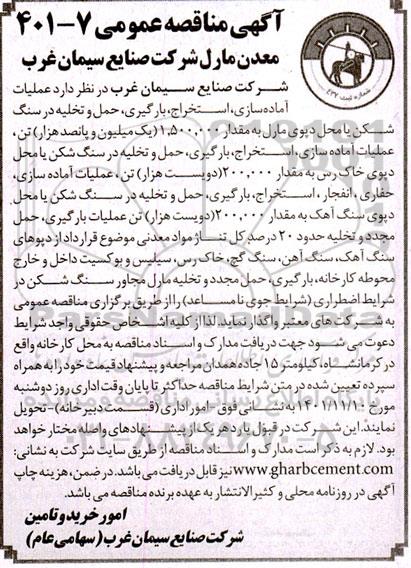 آگهی مناقصه عمومی ۷-۴۰۱
معدن مارل شرکت صنایع سیمان غرب
شماره ثبت ۴۳۷
شرکت صنایع سیمان غرب در نظر دارد عملیات
آماده سازی، استخراج، بارگیری، حمل و تخلیه در سنگ
شکن یا محل دپوی مارل به مقدار ۱,۵۰۰,۰۰۰ (یک میلیون و پانصد هزار) تن،
عملیات آماده سازی، استخراج، بارگیری، حمل و تخلیه در سنگ شکن یا محل
دپوی خاک رس به مقدار ۲۰۰,۰۰۰ (دویست هزار) تن، عملیات آماده سازی،
حفاری، انفجار، استخراج، بارگیری، حمل و تخلیه در سنگ شکن یا محل
دپوی سنگ آهک به مقدار ۲۰۰,۰۰۰ (دویست هزار) تن عملیات بارگیری، حمل
مجدد و تخلیه حدود ۲۰ درصد کل تناژ مواد معدنی موضوع قرارداد از دپوهای
سنگ آهک، سنگ آهن، سنگ گچ، خاک رس، سیلیس و بوکسیت داخل و خارج
محوطه کارخانه، بارگیری، حمل مجدد و تخلیه مارل مجاور سنگ شکن در
شرایط اضطراری (شرایط جوی نامساعد) را از طریق برگزاری مناقصه عمومی
به شرکت های معتبر واگذار نماید. لذا از کلیه اشخاص حقوقی واجد شرایط
دعوت می شود جهت دریافت مدارک و اسناد مناقصه به محل کارخانه واقع
در کرمانشاه، کیلومتر ۱۵ جاده همدان مراجعه و پیشنهاد قیمت خود را به همراه
سپرده تعیین شده در متن شرایط مناقصه حداکثر تا پایان وقت اداری روز دوشنبه
مورخ ۱۴۰۱/۱۱/۱۰ به نشانی فوق - امور اداری (قسمت دبیرخانه) - تحویل
نمایند. این شرکت در قبول یا رد هر یک از پیشنهادهای واصله مختار خواهد
بود. لازم به ذکر است مدارک و اسناد مناقصه از طریق سایت شرکت به نشانی:
www.gharbcement.com نیز قابل دریافت می باشد. در ضمن، هزینه چاپ
آگهی در روزنامه محلی و کثیرالانتشار به عهده برنده مناقصه می باشد.
امور خرید و تامین
شرکت صنایع سیمان غرب (سهامی عام)